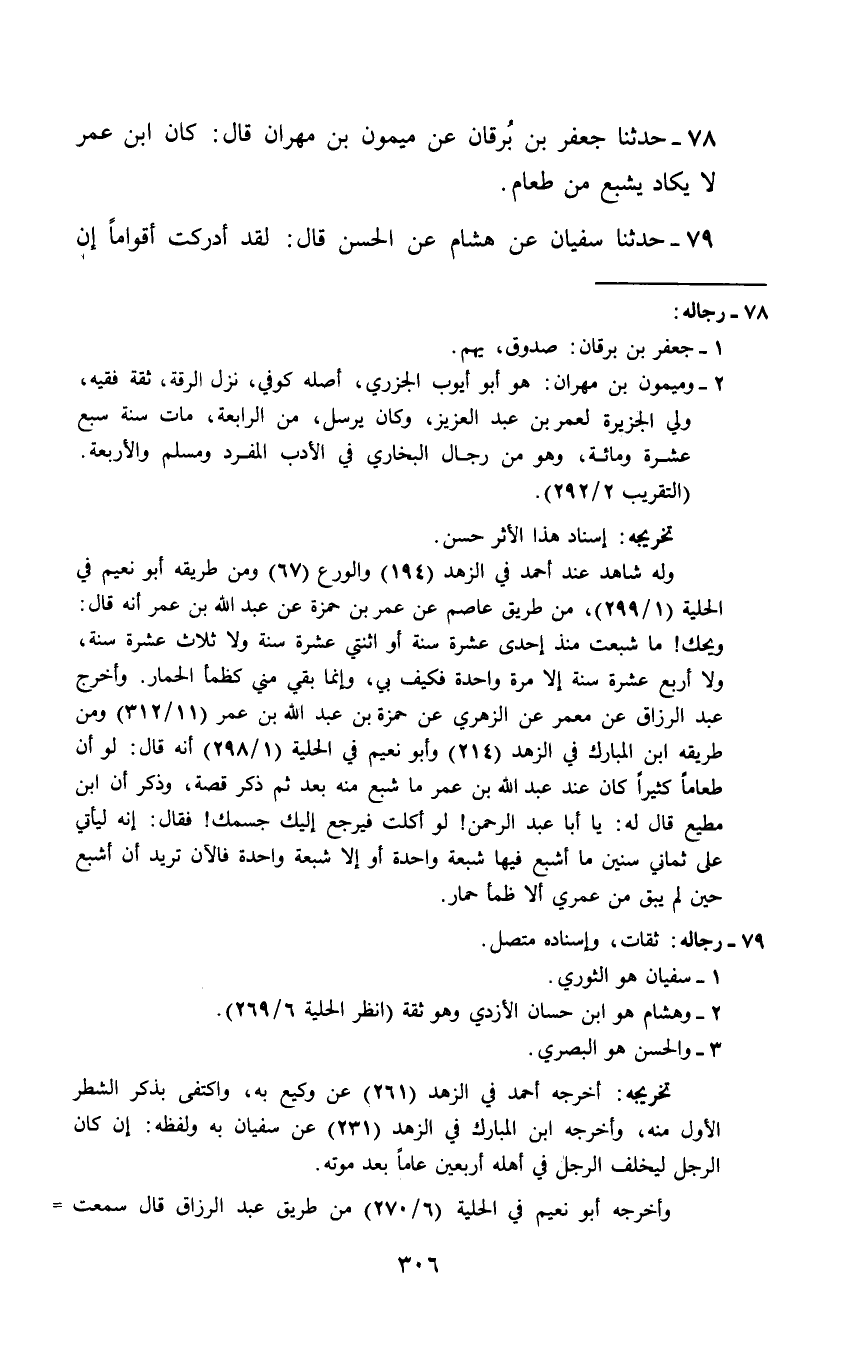 ٧٨ - حدثنا جعفر بن بُرقان عن ميمون بن مهران قال: كان ابن عمر
لا يكاد يشبع من طعام.
٧٩ - حدثنا سفيان عن هشام عن الحسن قال: لقد أدركت أقواماً إن
٧٨ - رجاله:
١ - جعفر بن برقان: صدوق، يهم.
٢ - وميمون بن مهران: هو أبو أيوب الجزري، أصله كوفي، نزل الرقة، ثقة فقيه،
ولي الجزيرة لعمر بن عبد العزيز، وكان يرسل، من الرابعة، مات سنة سبع
عشرة ومائة، وهو من رجال البخاري في الأدب المفرد ومسلم والأربعة.
(التقريب ٢٩٢/٢).
تخريجه: إسناد هذا الأثر حسن.
وله شاهد عند أحمد في الزهد (١٩٤) والورع (٦٧) ومن طريقه أبو نعيم في
الحلية (٢٩٩/١)، من طريق عاصم عن عمر بن حمزة عن عبد الله بن عمر أنه قال:
ويحك! ما شبعت منذ إحدى عشرة سنة أو اثنتي عشرة سنة ولا ثلاث عشرة سنة،
ولا أربع عشرة سنة إلا مرة واحدة فكيف بي، وإنما بقي مني كظمأ الحمار. وأخرج
عبد الرزاق عن معمر عن الزهري عن حمزة بن عبد الله بن عمر (٣١٢/١١) ومن
طريقه ابن المبارك في الزهد (٢١٤) وأبو نعيم في الحلية (٢٩٨/١) أنه قال: لو أن
طعاماً كثيراً كان عند عبد الله بن عمر ما شبع منه بعد ثم ذكر قصة، وذكر أن ابن
مطيع قال له: يا أبا عبد الرحمن! لو أكلت فيرجع إليك جسمك! فقال: إنه ليأتي
على ثماني سنين ما أشبع فيها شبعة واحدة أو إلا شبعة واحدة فالآن تريد أن أشبع
حين لم يبق من عمري ألا ظمأ حمار.
٧٩ - رجاله: ثقات، وإسناده متصل.
١ - سفيان هو الثوري.
٢ - وهشام هو ابن حسان الأزدي وهو ثقة (انظر الحلية ٢٦٩/٦).
٣ - والحسن هو البصري.
تخريجه: أخرجه أحمد في الزهد (٢٦١) عن وكيع به، واكتفى بذكر الشطر
الأول منه، وأخرجه ابن المبارك في الزهد (٢٣١) عن سفيان به ولفظه: إن كان
الرجل ليخلف الرجل في أهله أربعين عاماً بعد موته.
وأخرجه أبو نعيم في الحلية (٢٧٠/٦) من طريق عبد الرزاق قال سمعت =
٣٠٦